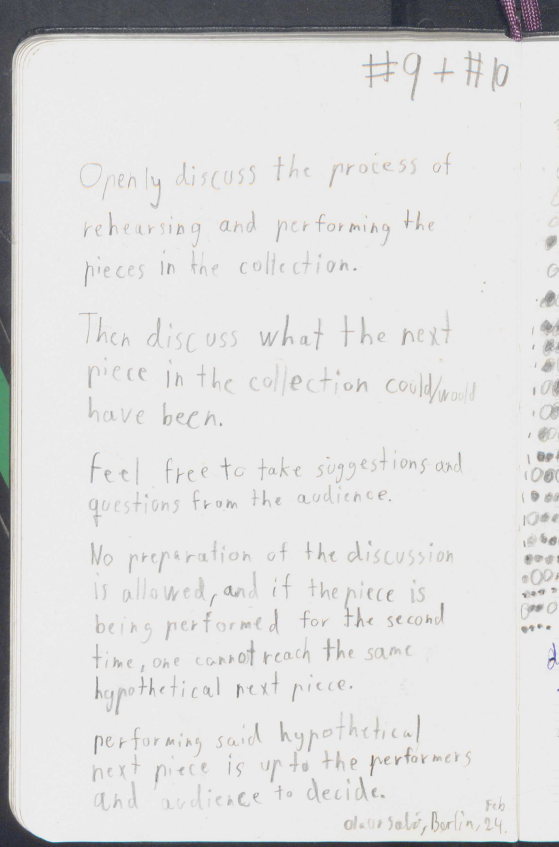 #9 + #10
Openly discuss the process of
rehearsing and performing the
pieces in the collection.
Then discuss what the next
piece in the collection could/would
have been.
feel free to take suggestions and
questions from the audience.
No preparation of the discussion
is allowed, and if the piece is
being performed for the second
time, one cannot reach the same
hypothetical next piece.
performing said hypothetical
next piece is up to the performers
and audience to decide.
Feb
Berlin, 24.